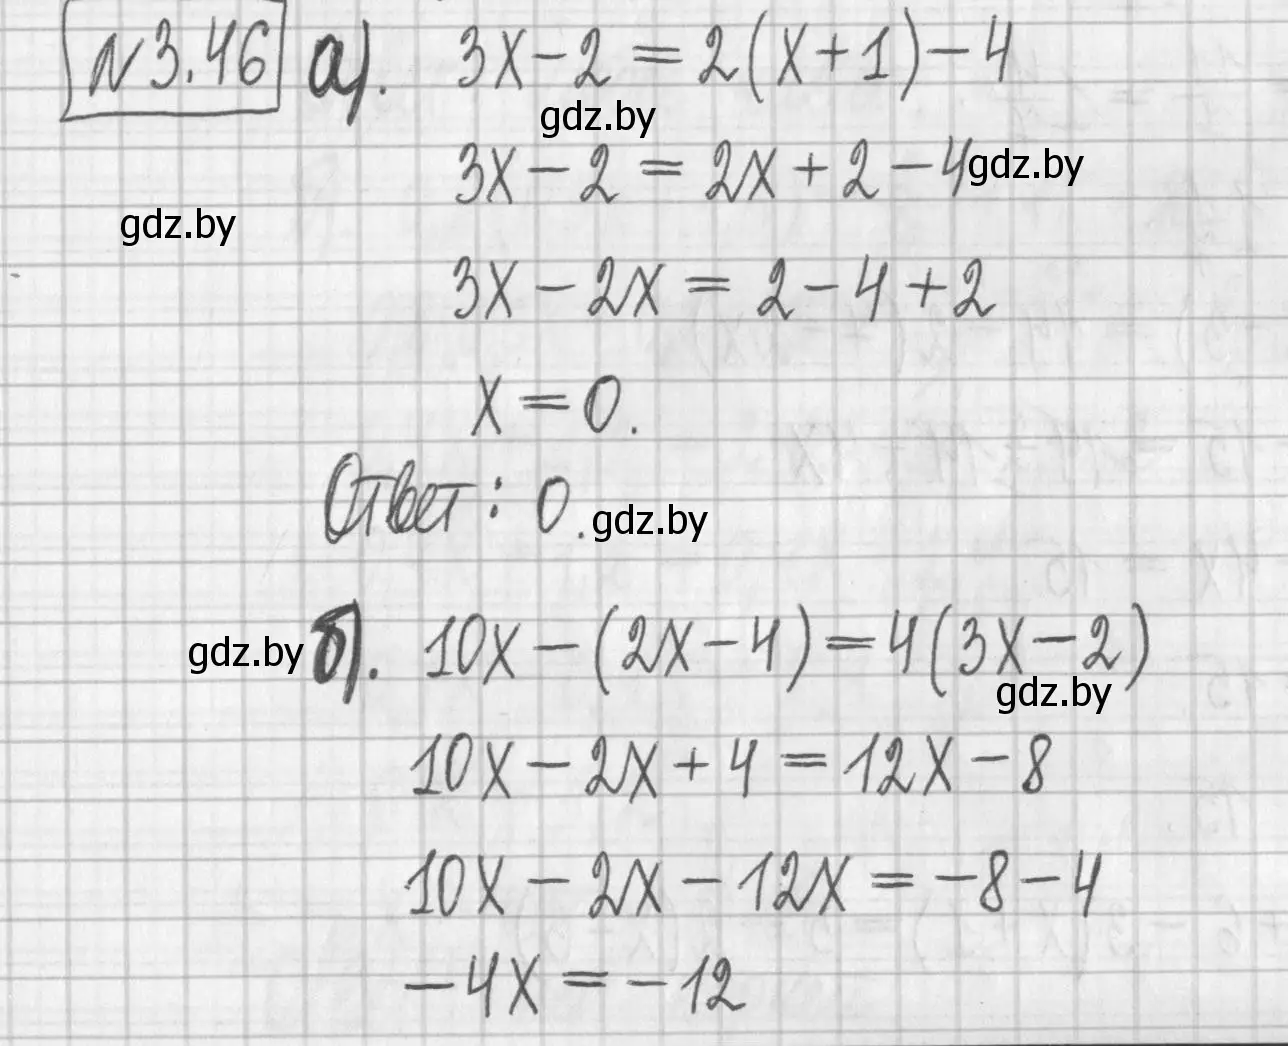 №3.46 а). 3x-2=2(x+1)-4
gdz.by
3x-2=2x+2-4 gdz.by
gdz.by
3x-2x=2-4+2
x=0.
Ответ: 0. gdz.by
gdz.by б). 10x-(2x-4)=4(3x-2)
gdz.by
10x-2x+4=12x-8
10x-2x-12x=-8-4
-4x=-12